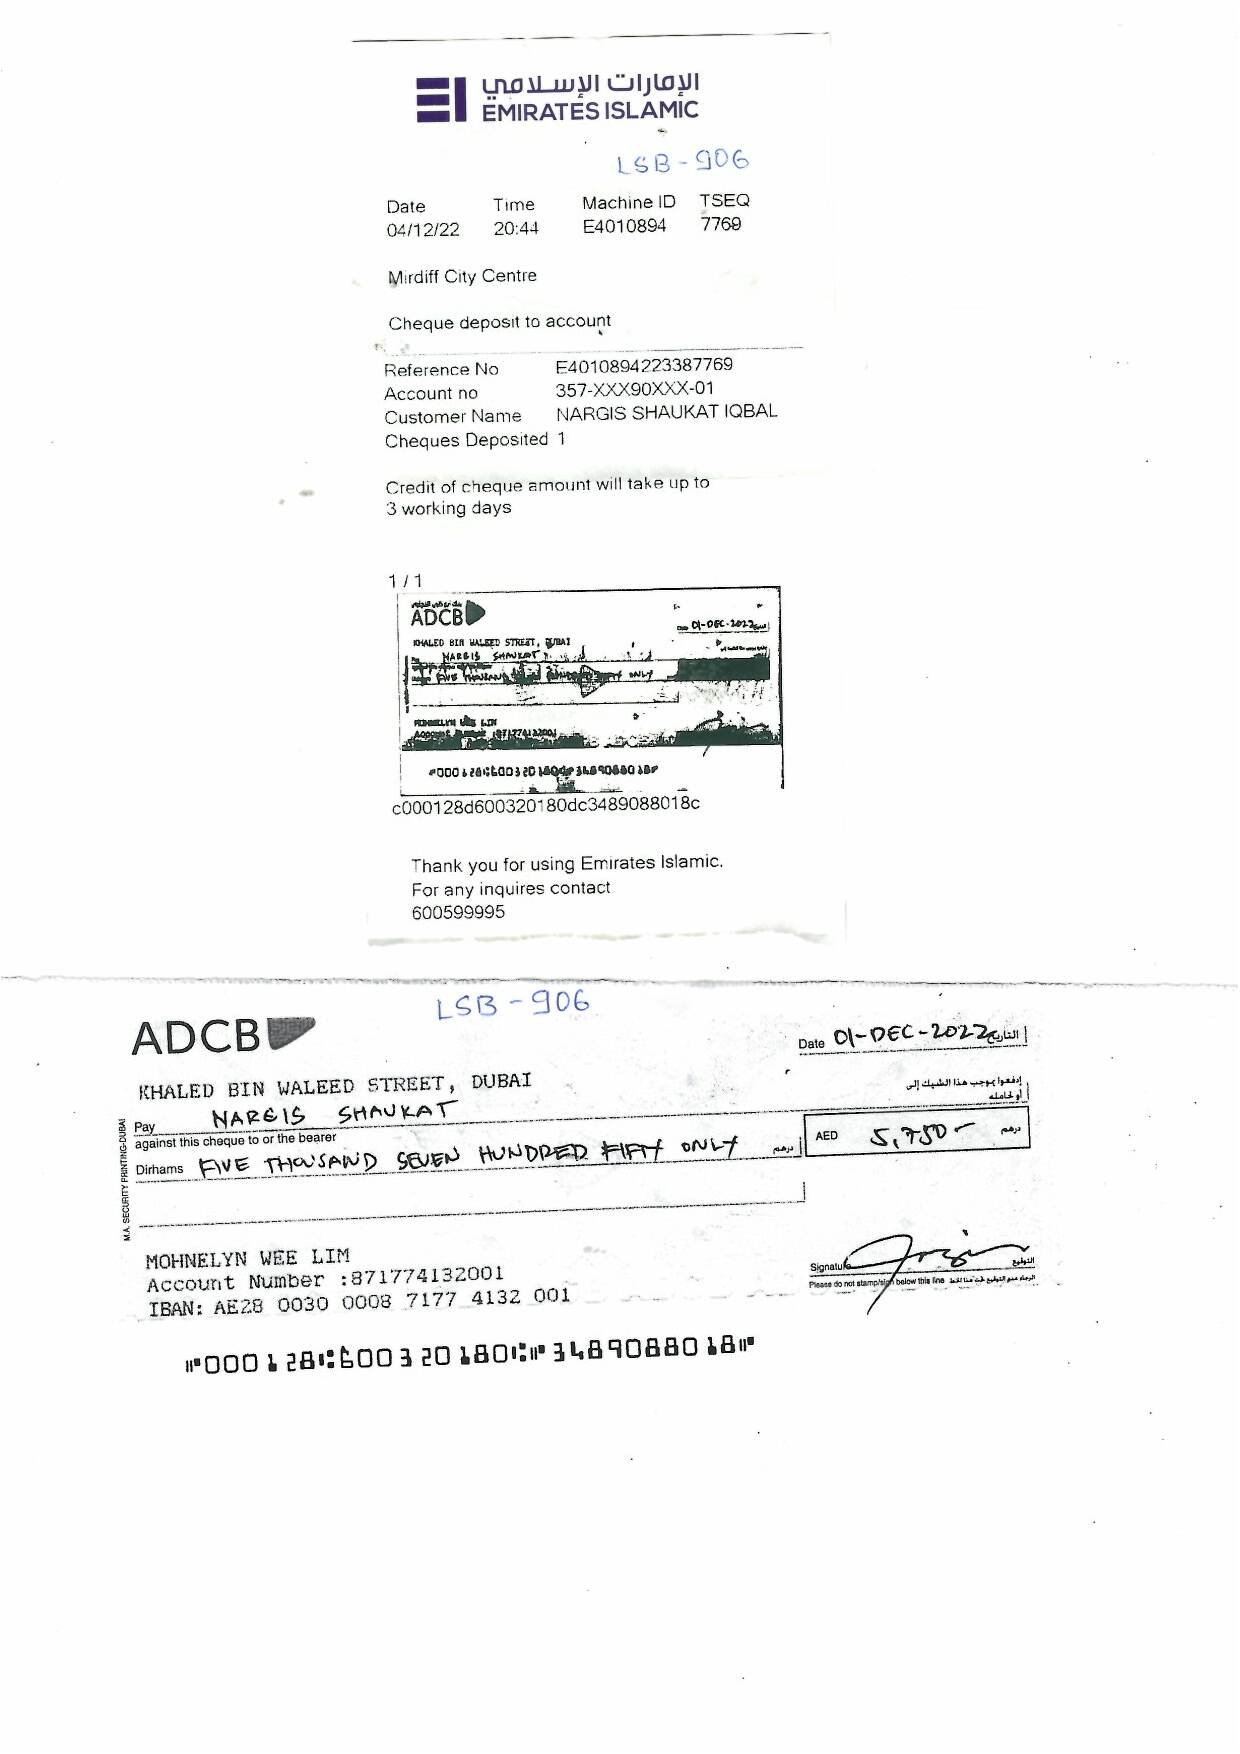 الإمارات الإسلامي
EMIRATES ISLAMIC
LSB - 906
Date Time Machine ID TSEQ
04/12/22 20:44 E4010894 7769
Mirdiff City Centre
Cheque deposit to account
Reference No E4010894223387769
Account no 357-XXX90XXX-01
Customer Name NARGIS SHAUKAT IQBAL
Cheques Deposited 1
Credit of cheque amount will take up to
3 working days
1 / 1
ADCB
01-DEC-2022
KHALED BIN WALEED STREET, DUBAI
NARGIS SHAUKAT
FIVE THOUSAND ONLY
MOHNELYN WEE LIM
Account Number :871774132001
⑈000128⑆600320180⑆⑈3489088018⑈
c000128d600320180dc3489088018c
Thank you for using Emirates Islamic.
For any inquires contact
600599995
LSB - 906
ADCB
Date 01-DEC-2022 التاريخ
KHALED BIN WALEED STREET, DUBAI
إدفعوا بموجب هذا الشيك إلى
أو لحامله
Pay NARGIS SHAUKAT
against this cheque to or the bearer
AED 5,750- درهم
Dirhams FIVE THOUSAND SEVEN HUNDRED FIFTY ONLY درهم
M.A. SECURITY PRINTING-DUBAI
MOHNELYN WEE LIM
Account Number :871774132001
IBAN: AE28 0030 0008 7177 4132 001
Signature التوقيع
Please do not stamp/sign below this line الرجاء عدم التوقيع تحت هذا الخط
⑈000128⑆600320180⑆⑈3489088018⑈